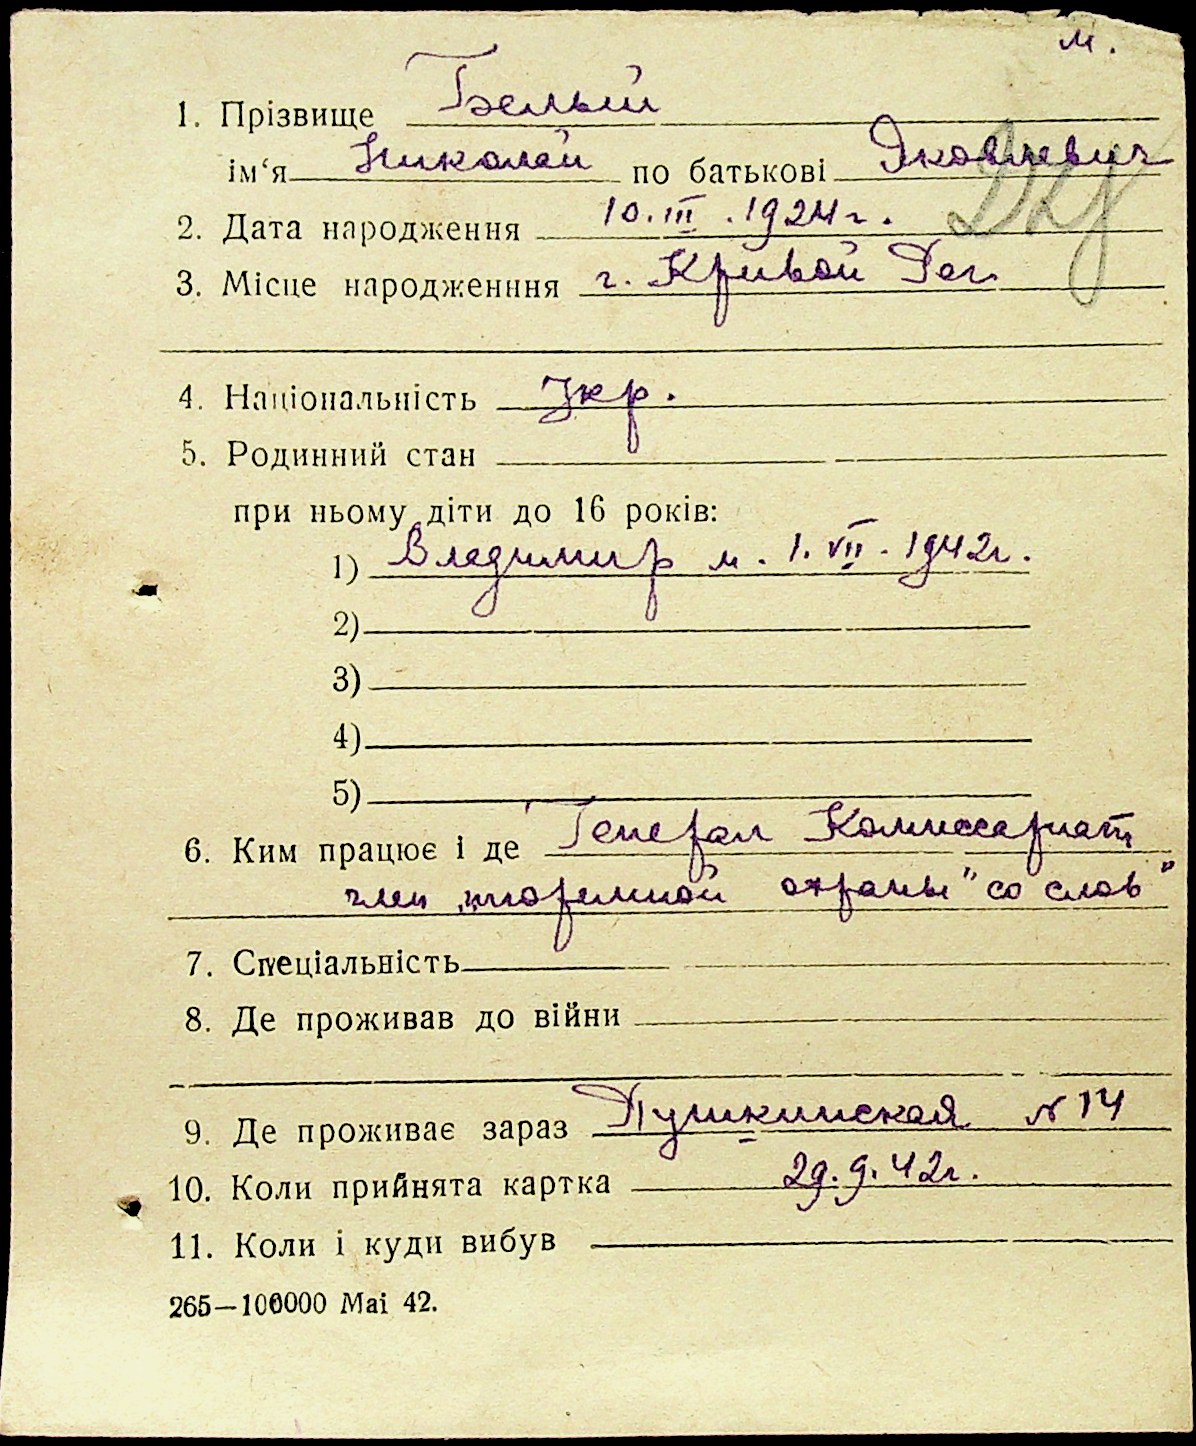 м.
1. Прізвище Белый
ім‘я Николай по батькові Яковлевич
2. Дата народження 10.III.1924г.
3. Місце народженння г. Кривой Рог
4. Національність Укр.
5. Родинний стан
при ньому діти до 16 років:
1) Владимир м. 1.VII.1942г.
2)
3)
4)
5)
6. Ким працює і де Генерал Комиссариат
член тюремной охраны "со слов"
7. Спеціальність
8. Де проживав до війни
9. Де проживає зараз Пушкинская № 14
10. Коли прийнята картка 29.9.42г.
11. Коли і куди вибув
265—100000 Маі 42.